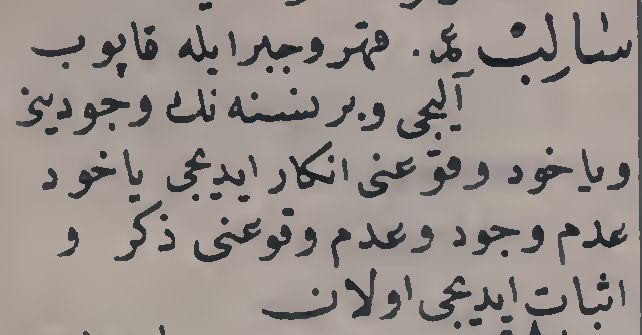 سالب ع. قهر وجبر ايله قاپوب
آليجى وبر نسنه نك وجودينى
وياخود وقوعنى انكار ايديجى ياخود
عدم وجود وعدم وقوعنى ذكر و
اثبات ايديجى اولان